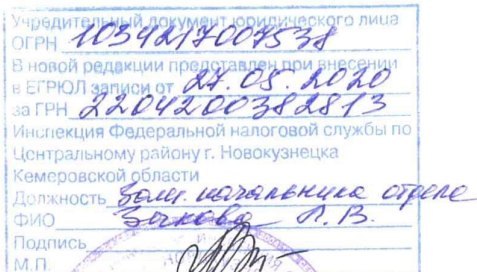 Учредительный документ юридического лица
ОГРН 1034217007538
В новой редакции представлен при внесении
в ЕГРЮЛ записи от 27.05.2020
за ГРН 2204200382813
Инспекция Федеральной налоговой службы по
Центральному району г. Новокузнецка
Кемеровской области
Должность Зам. начальника отдела
ФИО Л. В.
Подпись
М.П.